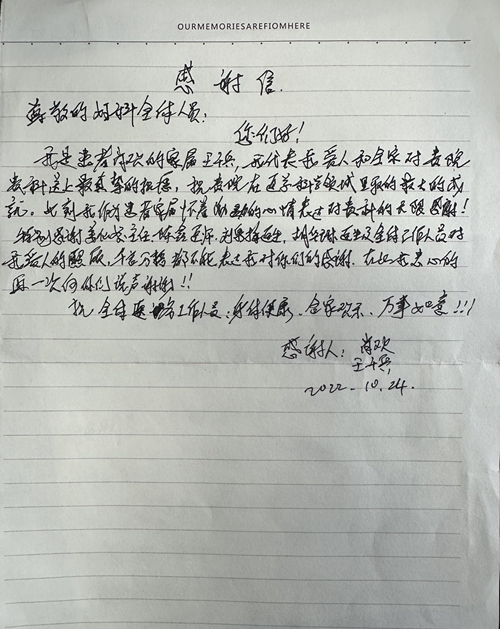 OURMEMORIESAREFIOMHERE
感谢信
尊敬的妇科全体人员:
您们好!
我是患者肖欢的家属王兵,我代表我爱人和全家对贵院
贵科送上最真挚的祝福,祝贵院在医学科学领域里取的最大的成
就。此刻我们作为患者家属怀着激动的心情表达对贵科的无限感谢!
特别感谢主任、医生及全体工作人员对
我爱人的照顾,千言万语都不能表达我对你们的感谢。在此我衷心的
再一次向你们说声谢谢!!
祝全体医务工作人员:身体健康、全家欢乐、万事如意!!!
感谢人:肖欢
王兵
2022.10.24.